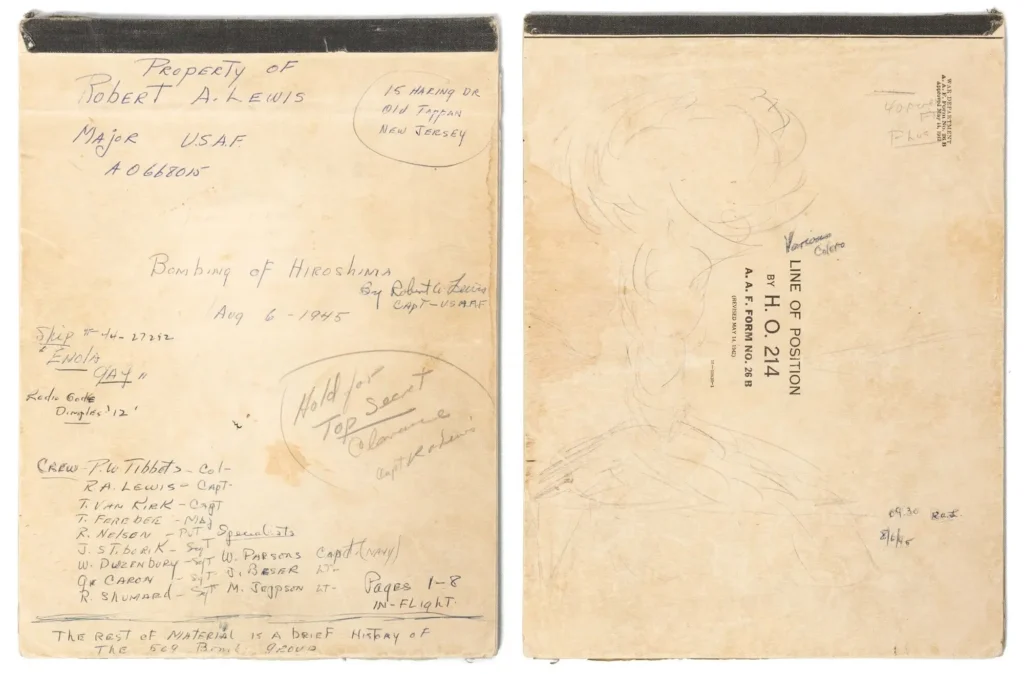 PROPERTY OF
ROBERT A. LEWIS
MAJOR USAF
AO668015
15 HARING DR
OLD TAPPAN
NEW JERSEY
BOMBING OF HIROSHIMA
By Robert A. Lewis
CAPT-USAAF
Aug 6-1945
Ship # 44-27292
"ENOLA
GAY"
Radio Code
Dimples '12'
Hold for
TOP Secret
Clearance
Capt R A Lewis
CREW-P.W. TIBBETS - Col-
R.A. LEWIS - CAPT-
T. VAN KIRK - Capt
T. FEREBEE - MAJ
R. NELSON - PVT Specialists
J. STIBORIK - Sgt
W. DUZENBURY - Sgt W. PARSONS Capt (NAVY)
CARON - Sgt J. BESER LT-
R. SHUMARD - Sgt M. JEPPSON LT-
PAGES 1-8
IN-FLIGHT.
THE REST OF MATERIAL IS A BRIEF HISTORY OF
THE 509 Bomb GROUP
WAR DEPARTMENT
Various
Colors
LINE OF POSITION
BY
H. O. 214
A. A. F. FORM NO. 26 B
(REVISED MAY 14, 1942)
0930
8/6/45